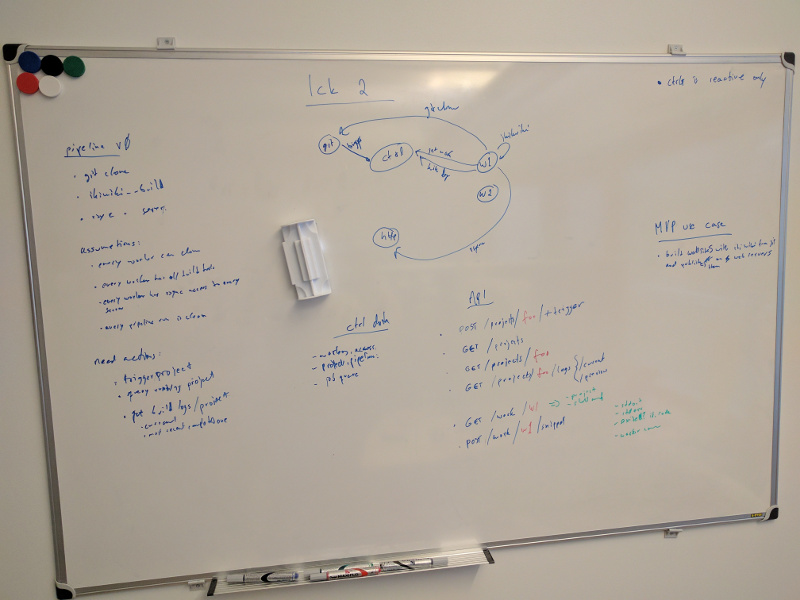 Ick 2
• ctrl is reactive only
git clone
git
ctrl
w1
w2
http
pipeline v0
• git clone
• ikiwiki --build
• rsync → server
Assumptions:
• every worker can clone
• every worker has all build tools
• every worker has rsync access to every
server
• every pipeline run is clean
Need actions:
• trigger project
• query running project
• get build logs / project
- current
- most recent
ctrl data
- workers, access
- projects, pipelines
- job queue
API
• POST /projects/foo/+trigger
• GET /projects
• GET /projects/foo
• GET /projects/foo/logs /current
/previous
• GET /work/w1 => - project
• POST /work/w1/snippet
- stdout
- stderr
MVP use case
• build websites with ikiwiki from git
and publish on web servers